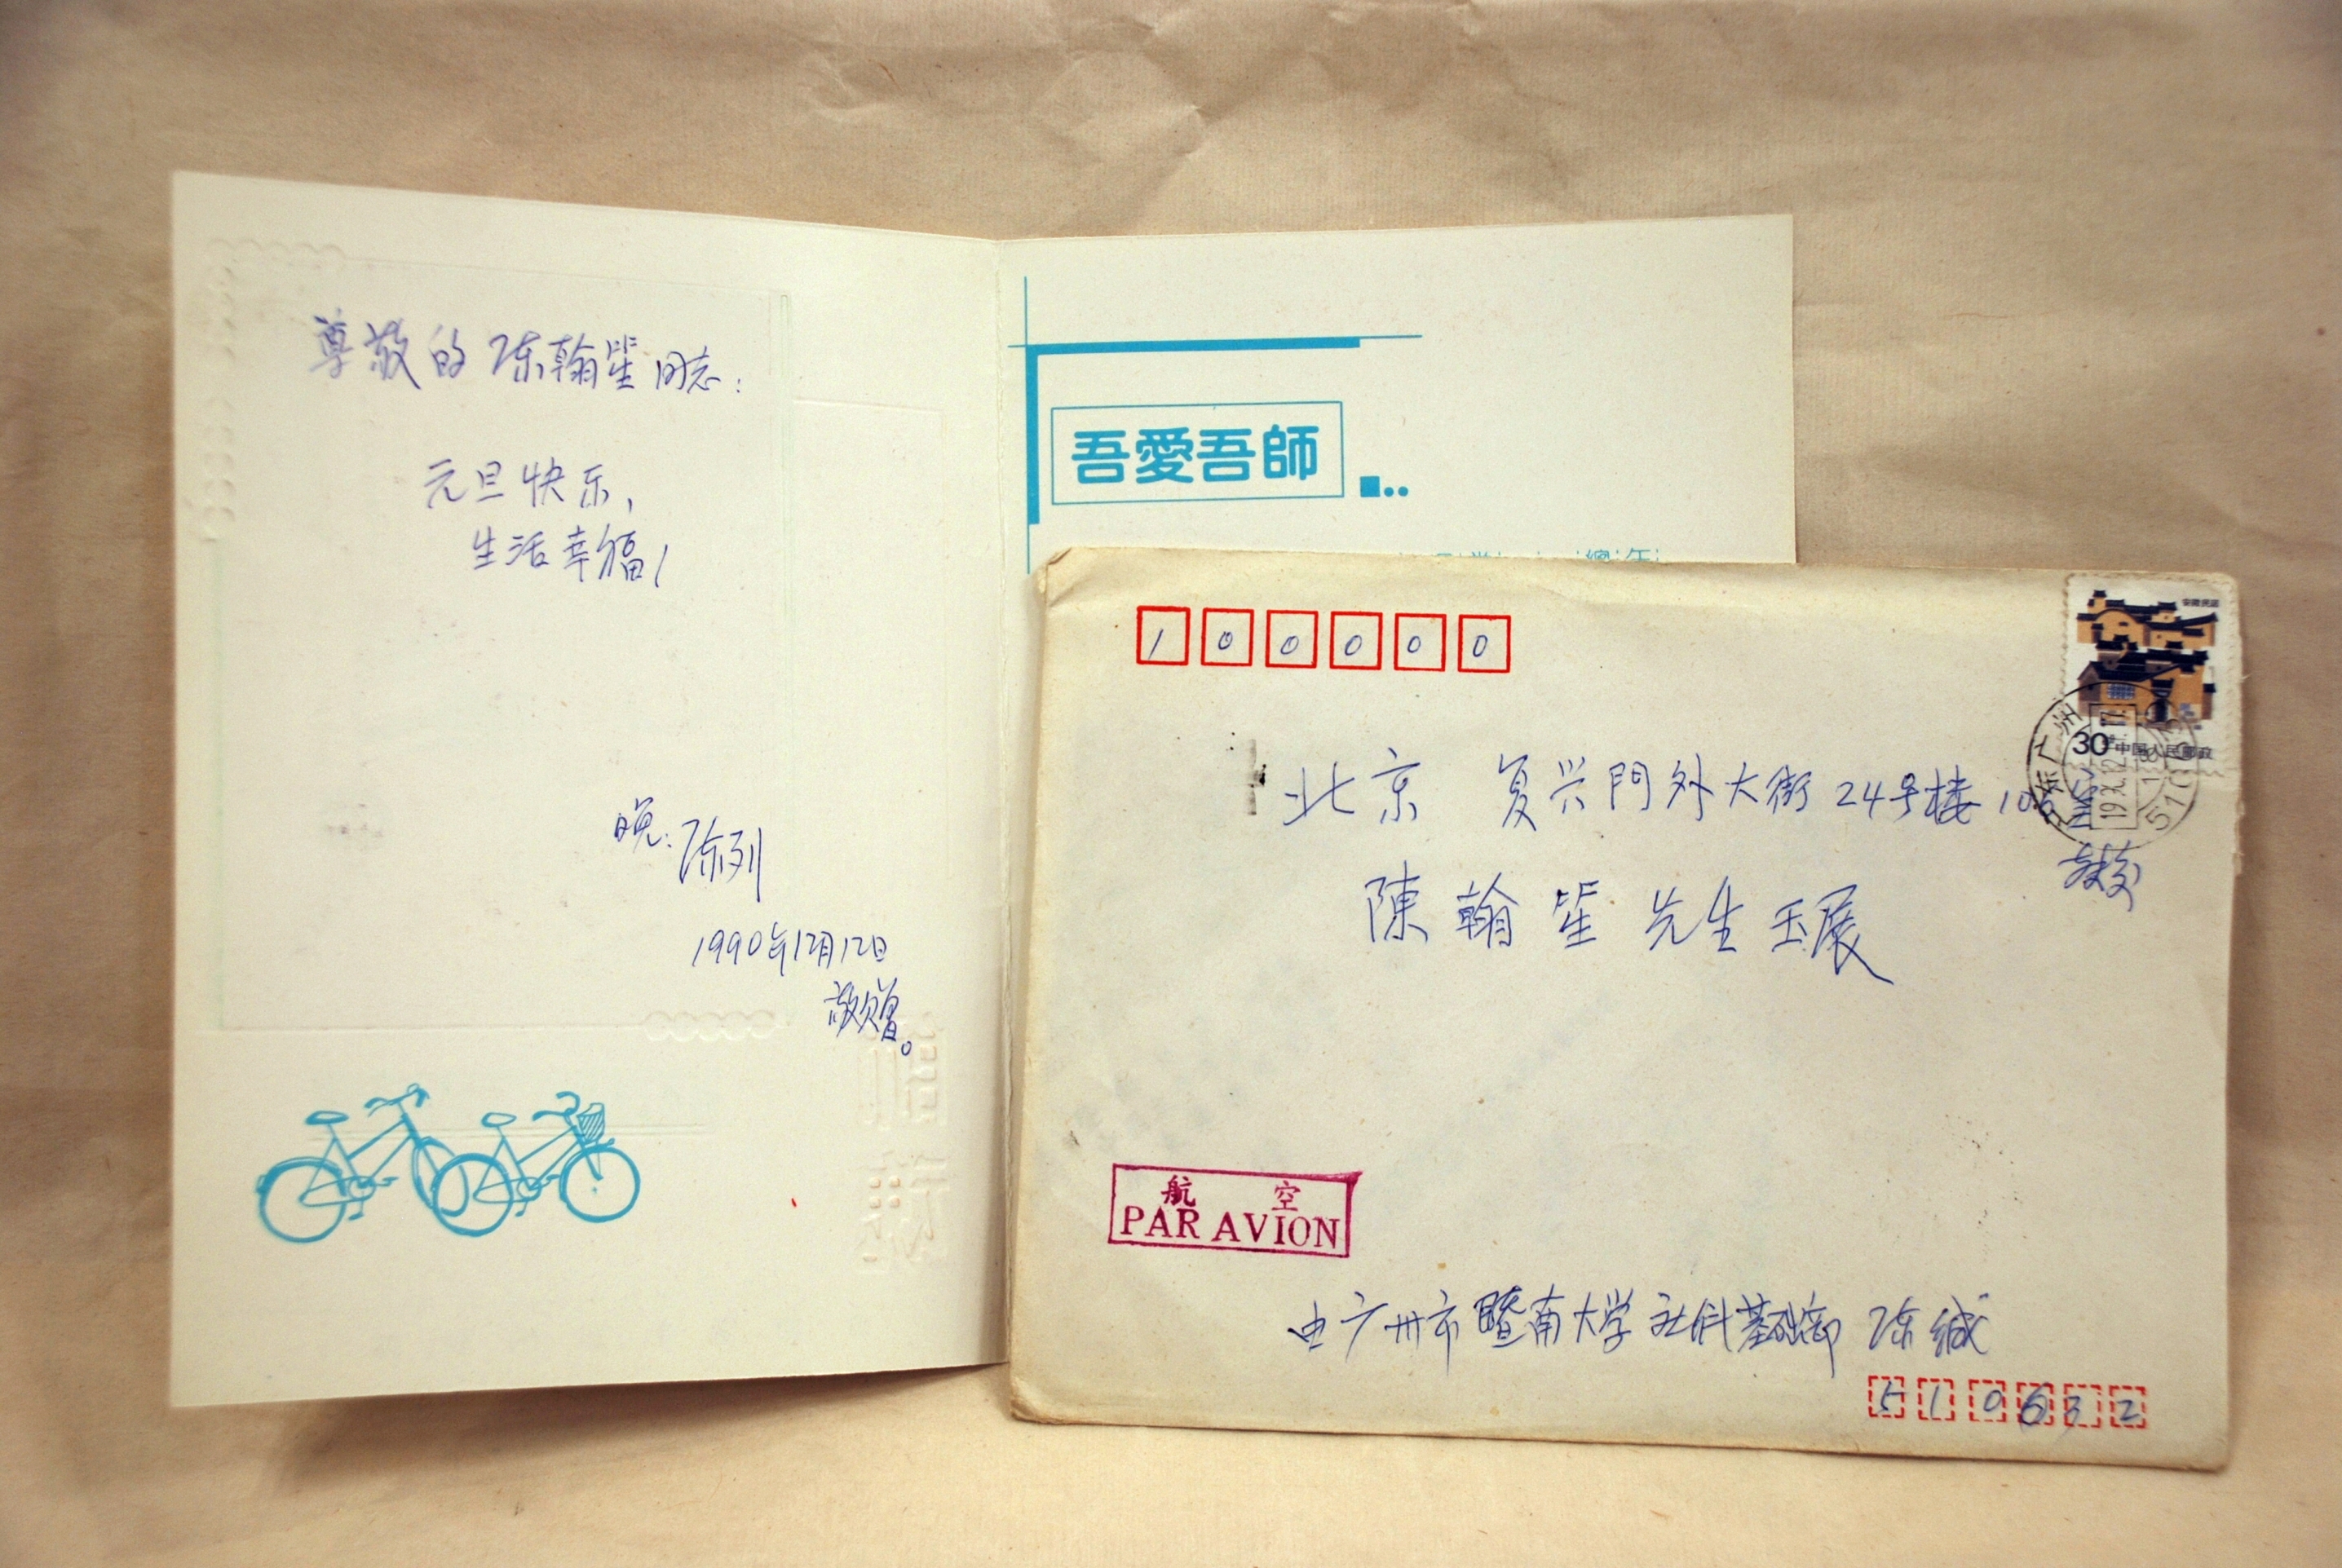 尊敬的陈翰笙同志:
元旦快乐,
生活幸福!
晚:陈列
1990年12月12日
敬赠。
吾愛吾師
100000
安徽民居
30分 中国人民邮政
北京 复兴門外大街24号楼
陳翰笙先生玉展
航空
PAR AVION
由广州市暨南大学社科基础部 陈缄
510632